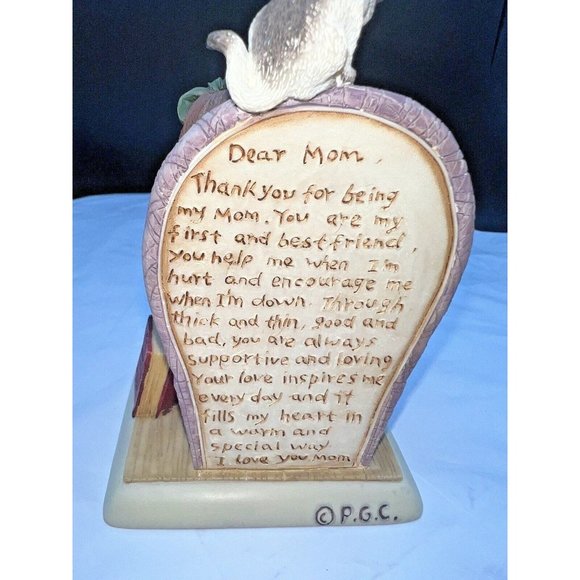 Dear Mom,
Thank you for being
my Mom. You are my
first and best friend,
you help me when I'm
hurt and encourage me
when I'm down. Through
thick and thin, good and
bad, you are always
supportive and loving
your love inspires me
every day and it
fills my heart in
a warm and
special way
I love you Mom,
© P.G.C.